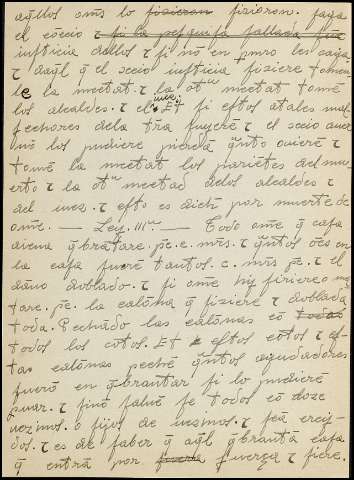 aq̃llos om̃s lo fizieron fizioron. faga
el cõceio τ si la pesquisa fallada fue
iusticia dellos τ si nõ en p̃miso les caya
τ daq̃l q̃ el scẽio iusticia fiziere tomen
le la meetat. τ la ot̃ᵃ meetat tome
los alcaldes. τ el iuez. Et si estos atales mal
fechores dela tr̃a fuyerẽ τ el
nõ los pudiere pierdã q̃nto ouierẽ τ
tomẽ la meetat los pariẽtes del mu
erto τ la ot̃ᵃ meetad delos alcaldes τ
del iuez. τ esto es dicho por muerte de
om̃e. — Ley. IIIᵃ — Todo om̃e q̃ casa
aiena q̃brãtare. pe. c. mr̃s. τ q̃ntos oẽs en
la casa fuerẽ tantos. c. mr̃s pe. τ el
dano doblado. τ si ome hy firiere o ma
tare. pe. la calõna q̃ fiziere τ doblada
toda. Pechãdo las calonas cõ todas
todos los cotos. Et estos cotos τ es
tas calõnas peche q̃ntos ayudadores
fuerõ en q̃brantar si lo pudierẽ
puar. τ sinõ salue se todos cõ doze
uezinos. o fijos de uezinos. τ seã creỹ
dos. τ es de saber q̃ aq̃l q̃brantã casa
q̃ entrã por fuerta fuerça τ fiere.